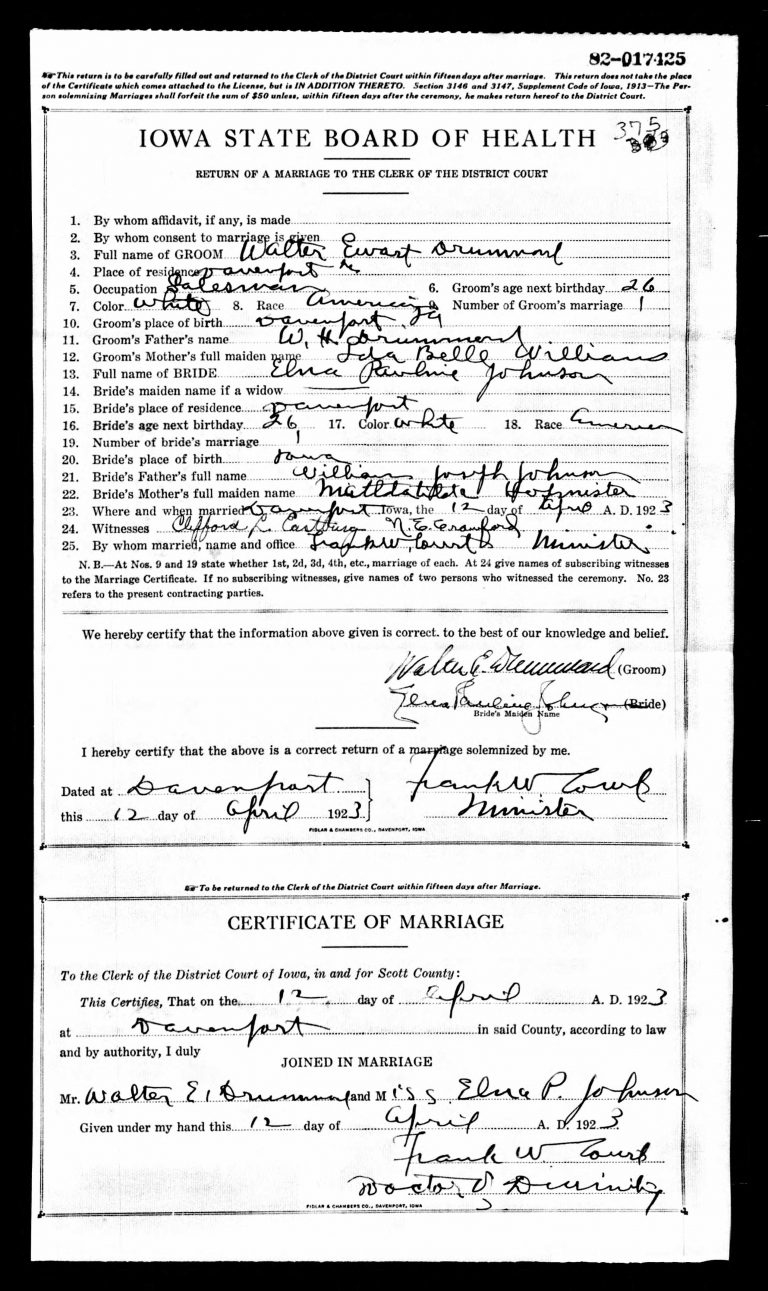 82-017425
This return is to be carefully filled out and returned to the Clerk of the District Court within fifteen days after marriage. This return does not take the place
of the Certificate which comes attached to the License, but is IN ADDITION THERETO. Section 3146 and 3147, Supplement Code of Iowa, 1913—The Per-
son solemnizing Marriages shall forfeit the sum of $50 unless, within fifteen days after the ceremony, he makes return hereof to the District Court.
IOWA STATE BOARD OF HEALTH 375
RETURN OF A MARRIAGE TO THE CLERK OF THE DISTRICT COURT
1. By whom affidavit, if any, is made
2. By whom consent to marriage is given
3. Full name of GROOM Walter Ewart Drummond
4. Place of residence Davenport Ia
5. Occupation Salesman 6. Groom's age next birthday 26
7. Color White 8. Race American 9. Number of Groom's marriage 1
10. Groom's place of birth Davenport, Ia
11. Groom's Father's name W. H. Drummond
12. Groom's Mother's full maiden name Ida Belle Williams
13. Full name of BRIDE Elna Pauline Johnson
14. Bride's maiden name if a widow
15. Bride's place of residence Davenport
16. Bride's age next birthday 26 17. Color White 18. Race American
19. Number of bride's marriage 1
20. Bride's place of birth Iowa
21. Bride's Father's full name William Joseph Johnson
22. Bride's Mother's full maiden name
23. Where and when married Davenport Iowa, the 12 day of April A. D. 1923
24. Witnesses Clifford L. N. E. Crawford
25. By whom married, name and office Frank W. Court Minister
N. B.—At Nos. 9 and 19 state whether 1st, 2d, 3d, 4th, etc., marriage of each. At 24 give names of subscribing witnesses
to the Marriage Certificate. If no subscribing witnesses, give names of two persons who witnessed the ceremony. No. 23
refers to the present contracting parties.
We hereby certify that the information above given is correct. to the best of our knowledge and belief.
Walter E. Drummond (Groom)
Elna Pauline Johnson (Bride)
Bride's Maiden Name
I hereby certify that the above is a correct return of a marriage solemnized by me.
Dated at Davenport Frank W. Court
this 12 day of April 1923 Minister
FIDLAR & CHAMBERS CO., DAVENPORT, IOWA
To be returned to the Clerk of the District Court within fifteen days after Marriage.
CERTIFICATE OF MARRIAGE
To the Clerk of the District Court of Iowa, in and for Scott County:
This Certifies, That on the 12 day of April A. D. 1923
at Davenport in said County, according to law
and by authority, I duly
JOINED IN MARRIAGE
Mr. Walter E. Drummond and Miss Elna P. Johnson
Given under my hand this 12 day of April A. D. 1923
Frank W Court
Doctor of Divinity
FIDLAR & CHAMBERS CO., DAVENPORT, IOWA